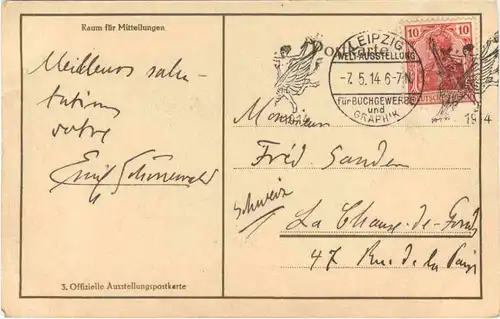 Raum für Mitteilungen
Postkarte
Meilleures salu-
tations
votre
Emil Schönewald
LEIPZIG
WELTAUSSTELLUNG
-7.5.14 6-7N.
für BUCHGEWERBE
und
GRAPHIK
10 10
DEUTSCHES REICH
1914
1914
Monsieur
Fréd. Sandoz
Schweiz
La Chaux-de-Fonds
47 Rue de la Paix
3. Offizielle Ausstellungspostkarte